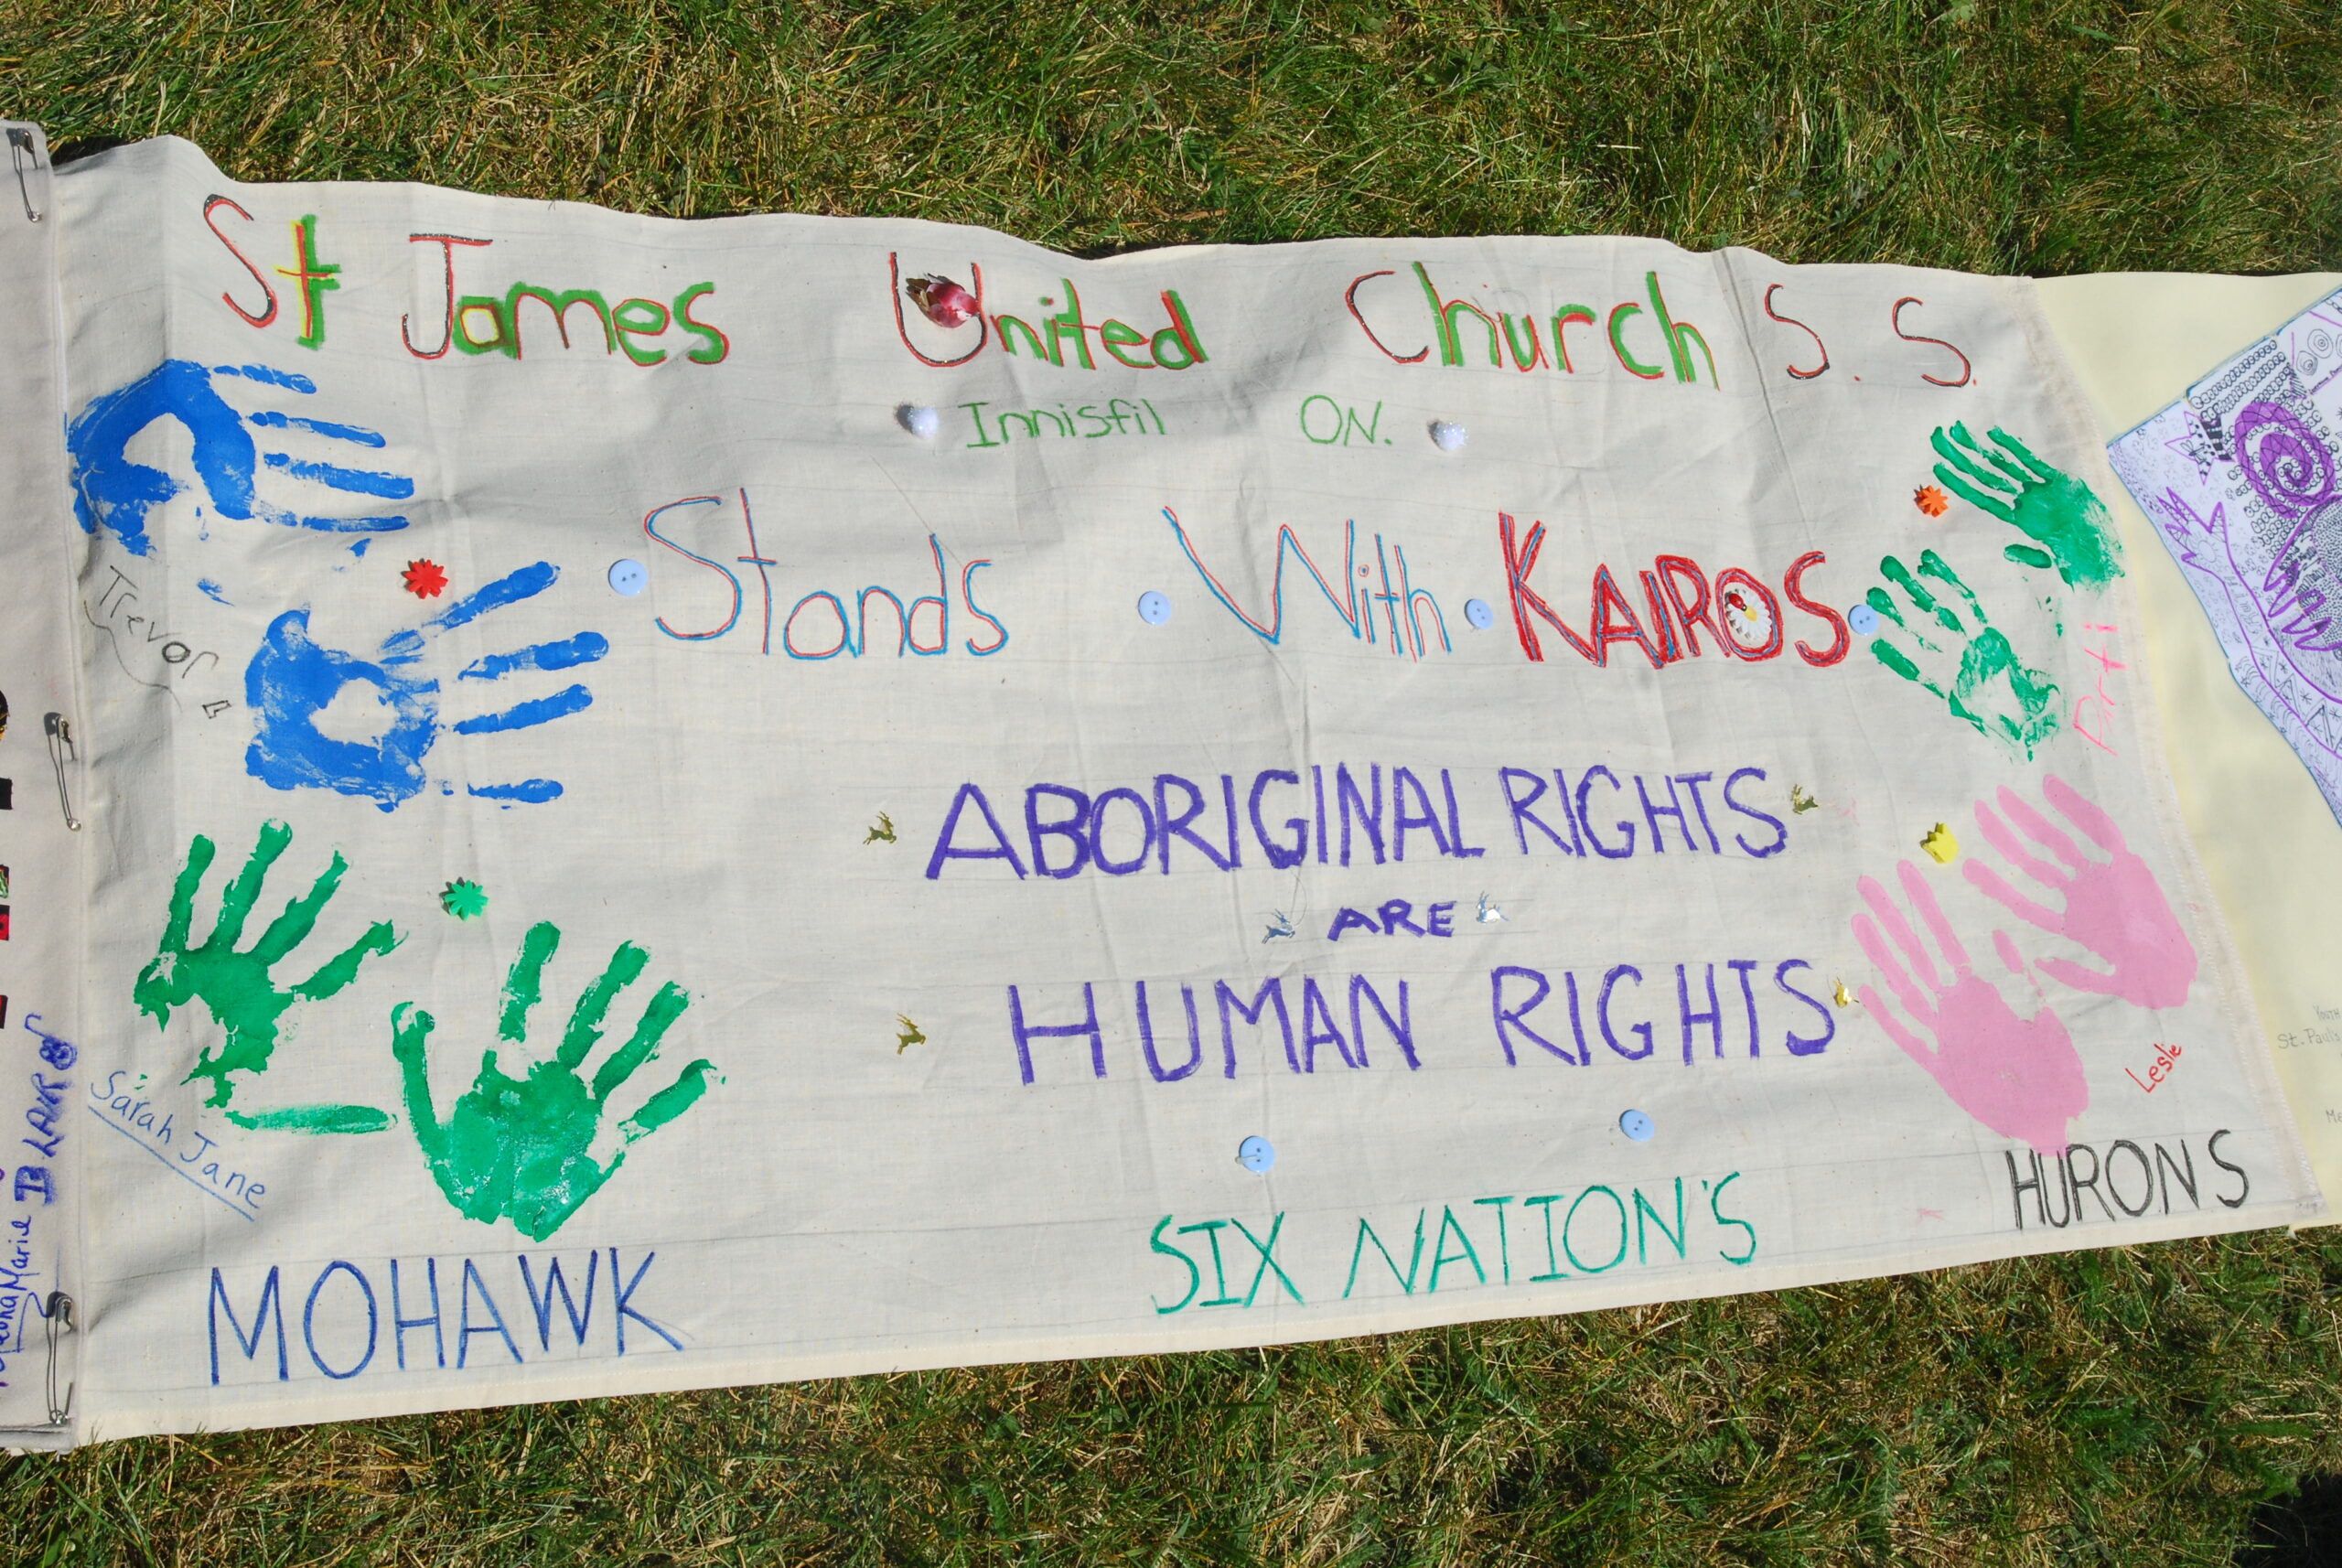 St James United Church S. S.
Innisfil ON.
Stands With KAIROS
Trevor
ABORIGINAL RIGHTS
ARE
HUMAN RIGHTS
Sarah Jane
Leslie
MOHAWK
SIX NATION'S
HURONS
Marie
St. Pauls